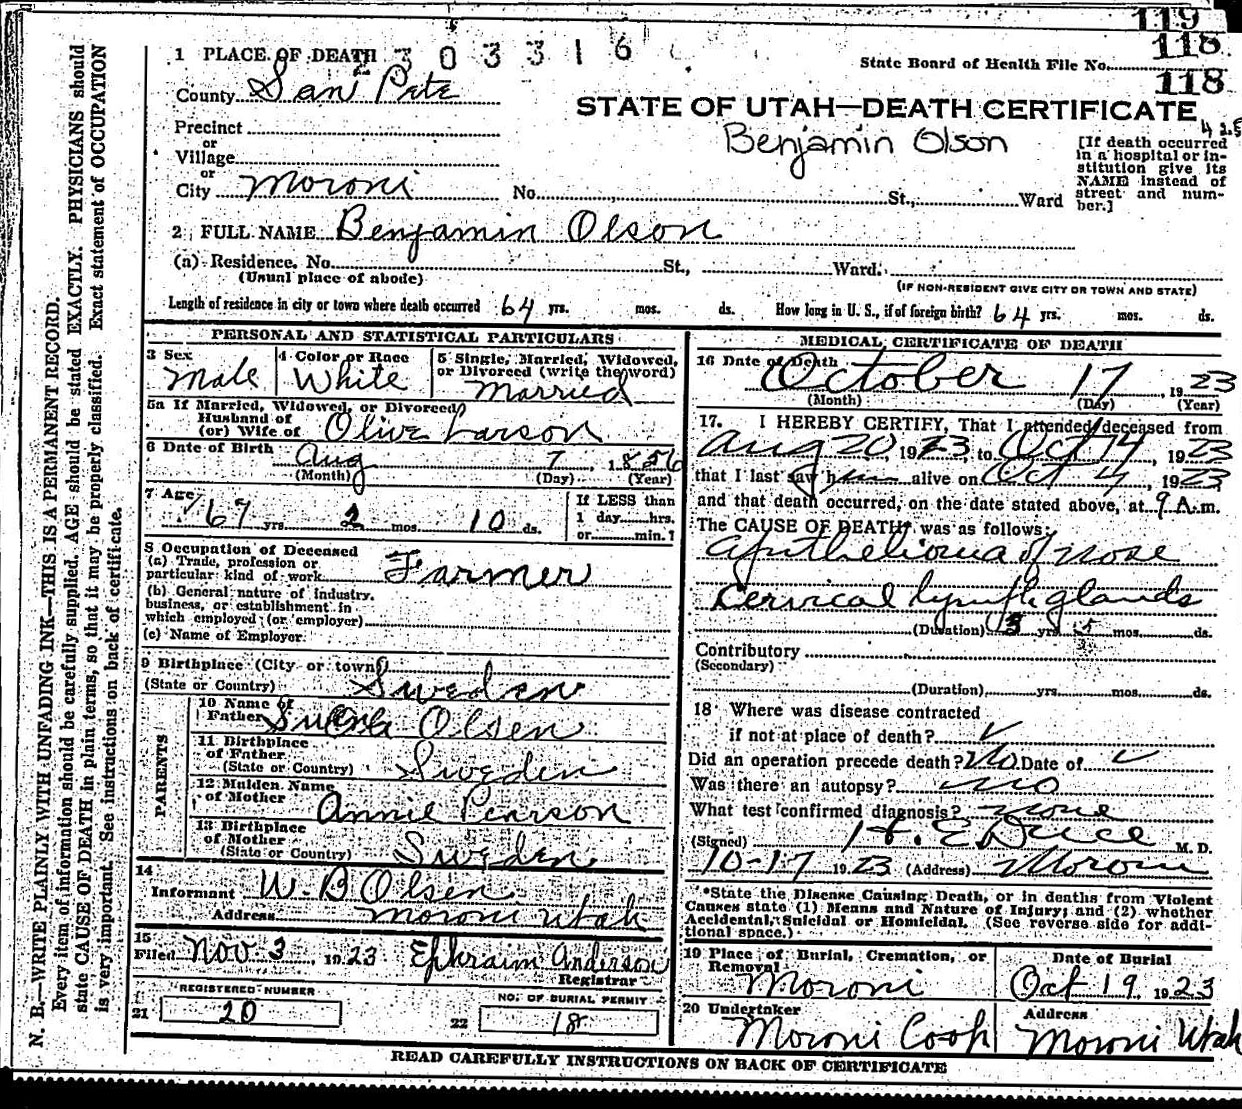 119
118
118
2303316
1 PLACE OF DEATH
State Board of Health File No.
County San Pete
STATE OF UTAH—DEATH CERTIFICATE
Benjamin Olson
Precinct
or
Village
or
City Moroni No. St., Ward
[If death occurred in a hospital or institution give its NAME instead of street and number.]
2 FULL NAME Benjamin Olson
(a) Residence. No. St., Ward.
(Usual place of abode) (IF NON-RESIDENT GIVE CITY OR TOWN AND STATE)
Length of residence in city or town where death occurred 64 yrs. mos. ds. How long in U. S., if of foreign birth? 64 yrs. mos. ds.
PERSONAL AND STATISTICAL PARTICULARS
3 Sex Male
4 Color or Race White
5 Single, Married, Widowed, or Divorced (write the word) Married
5a If Married, Widowed, or Divorced
Husband of
(or) Wife of Olive Larson
6 Date of Birth Aug 7, 1856
(Month) (Day) (Year)
7 Age 67 yrs. 2 mos. 10 ds.
If LESS than
1 day......hrs.
or......min.?
8 Occupation of Deceased
(a) Trade, profession or particular kind of work Farmer
(b) General nature of industry, business, or establishment in which employed (or employer)
(c) Name of Employer
9 Birthplace (City or town)
(State or Country) Sweden
PARENTS
10 Name of Father Olsen
11 Birthplace of Father
(State or Country) Sweden
12 Maiden Name of Mother Annie Pearson
13 Birthplace of Mother
(State or Country) Sweden
14
Informant W. B Olsen
Address Moroni Utah
15
Filed Nov 3, 1923 Ephraim Anderson
Registrar
REGISTERED NUMBER
21 20
NO. OF BURIAL PERMIT
22 18
MEDICAL CERTIFICATE OF DEATH
16 Date of Death October 17, 1923
(Month) (Day) (Year)
17. I HEREBY CERTIFY, That I attended deceased from
Aug 20 1923, to Oct 14, 1923
that I last saw him alive on Oct 4, 1923
and that death occurred, on the date stated above, at 9 A.m.
The CAUSE OF DEATH* was as follows:
Epithelioma of nose
Cervical lymph glands
(Duration) 3 yrs. 5 mos. ds.
Contributory
(Secondary)
(Duration) yrs. mos. ds.
18 Where was disease contracted
if not at place of death? ✓
Did an operation precede death? No. Date of ✓
Was there an autopsy? no
What test confirmed diagnosis? none
(Signed) H. E. M. D.
10-17 1923 (Address) Moroni
*State the Disease Causing Death, or in deaths from Violent Causes state (1) Means and Nature of Injury; and (2) whether Accidental, Suicidal or Homicidal. (See reverse side for additional space.)
19 Place of Burial, Cremation, or Removal Moroni
Date of Burial Oct 19 1923
20 Undertaker Moroni Coop
Address Moroni Utah
READ CAREFULLY INSTRUCTIONS ON BACK OF CERTIFICATE
N. B.—WRITE PLAINLY WITH UNFADING INK—THIS IS A PERMANENT RECORD.
Every item of information should be carefully supplied. AGE should be stated EXACTLY. PHYSICIANS should
state CAUSE OF DEATH in plain terms, so that it may be properly classified. Exact statement of OCCUPATION
is very important. See instructions on back of certificate.